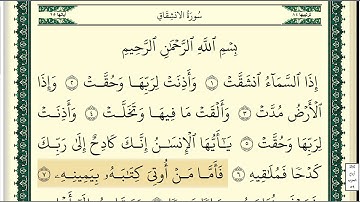 سُورَةُ الانشِقَاقِ
بِسْمِ ٱللَّهِ ٱلرَّحْمَٰنِ ٱلرَّحِيمِ
إِذَا ٱلسَّمَآءُ ٱنشَقَّتْ ١ وَأَذِنَتْ لِرَبِّهَا وَحُقَّتْ ٢ وَإِذَا
ٱلْأَرْضُ مُدَّتْ ٣ وَأَلْقَتْ مَا فِيهَا وَتَخَلَّتْ ٤ وَأَذِنَتْ
لِرَبِّهَا وَحُقَّتْ ٥ يَٰٓأَيُّهَا ٱلْإِنسَٰنُ إِنَّكَ كَادِحٌ إِلَىٰ رَبِّكَ
كَدْحًا فَمُلَٰقِيهِ ٦ فَأَمَّا مَنْ أُوتِىَ كِتَٰبَهُۥ بِيَمِينِهِۦ ٧